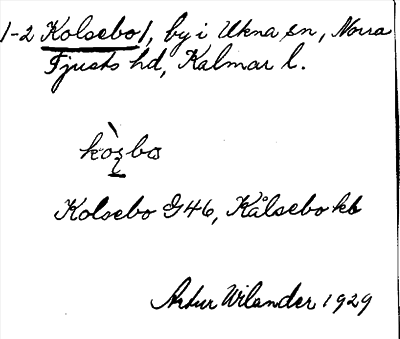 1-2 Kolsebo/, by i Ukna sn, Norra
Tjusts hd, Kalmar l.
Kolsebo G46, Kålsebo kb
Artur Wilander 1929